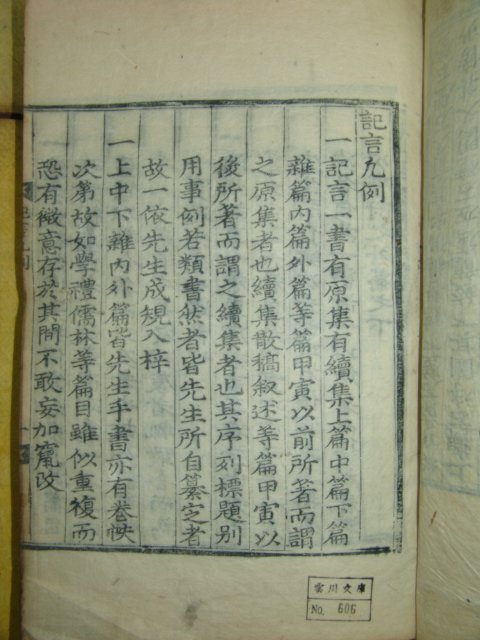 記言凡例
一記言一書有原集有續集上篇中篇下篇
雜篇內篇外篇等篇甲寅以前所著而謂
之原集者也續集散稿叙述等篇甲寅以
後所著而謂之續集者也其序列標題別
用事例若類書然者皆先生所自纂定者
故一依先生成規入梓
一上中下雜內外篇皆先生手書亦有卷帙
次第故如學禮儒林等篇目雖似重複而
恐有微意存於其間不敢妄加竄改
雲川文庫
No. 606